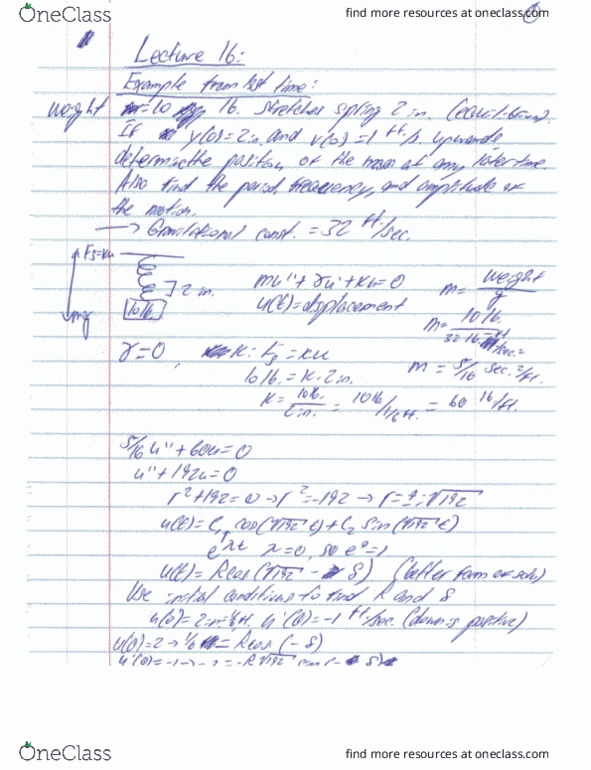 OneClass
find more resources at oneclass.com
Lecture 16:
Example from last time:
weight = 10 lb. stretches spring 2 in. (equilibrium).
If y(0)=2in. and v(0)=1 ft/s. upwards,
determine the position of the mass at any later time.
Also find the period, frequency, and amplitude of
the motion.
→ Gravitational const. = 32 ft/sec.
Fs=ku
]2 in.
10lb.
mg
mu''+γu'+ku=0
u(t)=displacement
m= weight/g
m= 10 lb./32
m = 5/16 sec.²/ft.
γ=0, k: Fs=ku
10 lb.=k·2in.
k= 10lb./2in. = 10lb/1/6 ft. = 60 lb/ft.
5/16 u''+60u=0
u''+192u=0
r²+192=0→r²=-192→r=±i√192
u(t)=C₁ cos(√192 t)+C₂ sin(√192 t)
e^λt λ=0, so e⁰=1
u(t)=Rcos(√192 - δ) (better form of soln)
Use initial conditions to find R and δ
u(0)=2in=1/6ft. u'(0)=-1 ft/sec. (down is positive)
u(0)=2→1/6=Rcos(-δ)
u'(0)=-1→-1=-R√192
OneClass
find more resources at oneclass.com